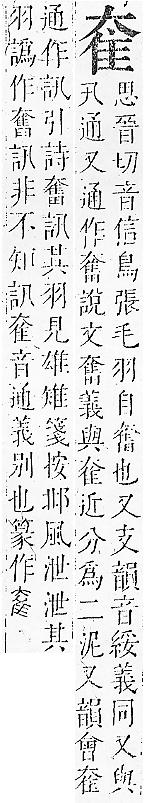 奞
思晉切音信鳥張毛羽自奮也又支韻音綏義同又與
卂通又通作奮說文奮義與奞近分爲二泥又韻會奞
通作訊引詩奮訊其羽見雄雉箋按邶風泄泄其
羽譌作奮訊非不知訊奞音通義别也篆作